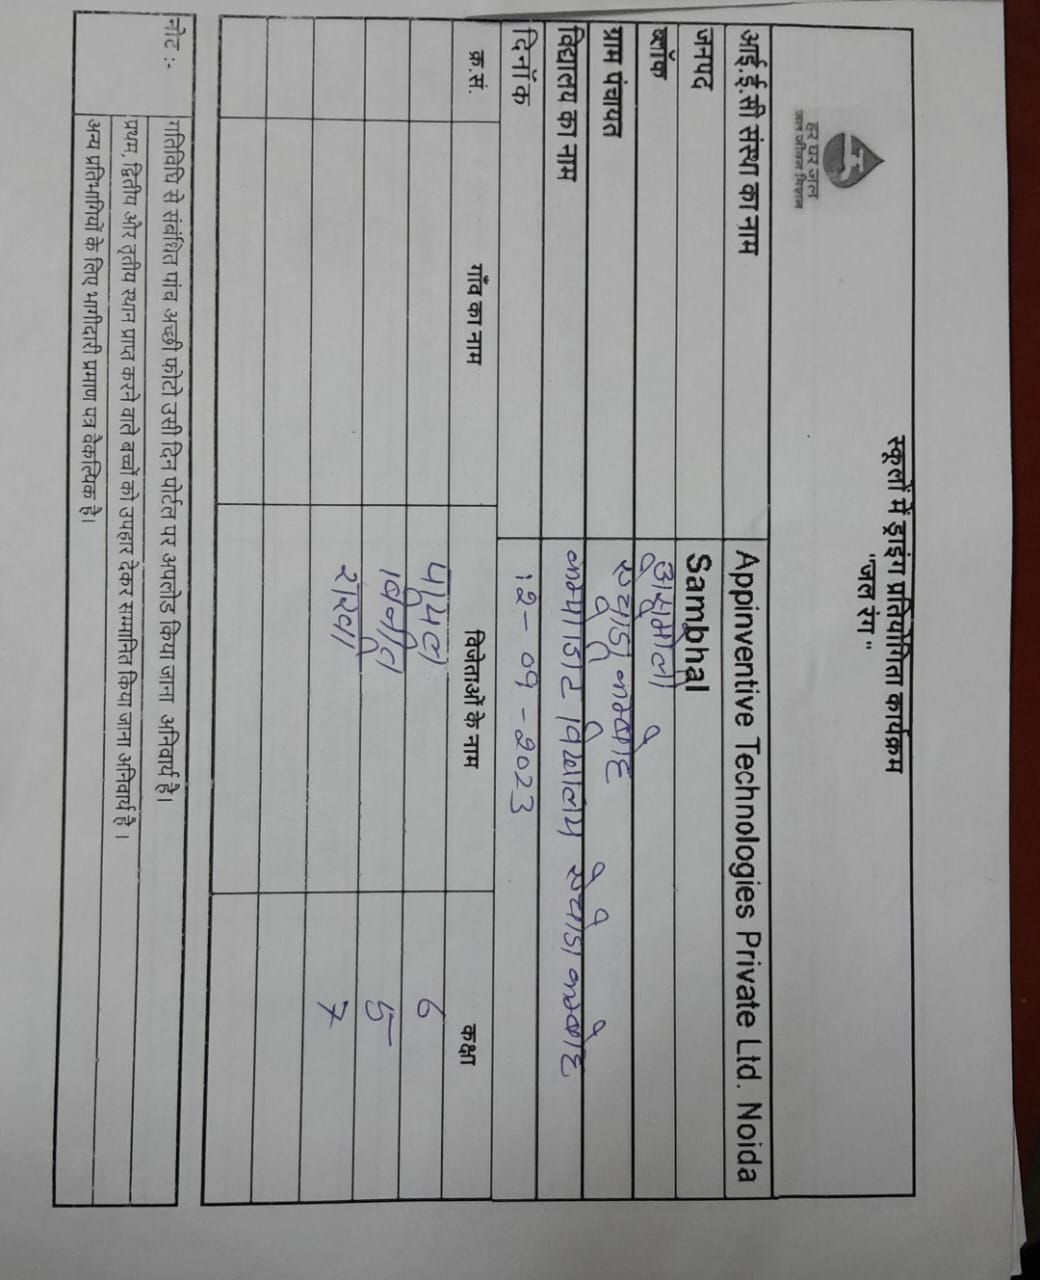 स्कूलों में ड्राइंग प्रतियोगिता कार्यक्रम
"जल रंग"
हर घर जल
जल जीवन मिशन
आई.ई.सी संस्था का नाम Appinventive Technologies Private Ltd. Noida
जनपद Sambhal
ब्लॉक
ग्राम पंचायत
विद्यालय का नाम विद्यालय
दिनाँक 12-09-2023
क्र.सं. गाँव का नाम विजेताओं के नाम कक्षा
6
विनीत 5
7
नोट :- गतिविधि से संबंधित पांच अच्छी फोटो उसी दिन पोर्टल पर अपलोड किया जाना अनिवार्य है।
प्रथम, द्वितीय और तृतीय स्थान प्राप्त करने वाले बच्चों को उपहार देकर सम्मानित किया जाना अनिवार्य है।
अन्य प्रतिभागियों के लिए भागीदारी प्रमाण पत्र वैकल्पिक है।